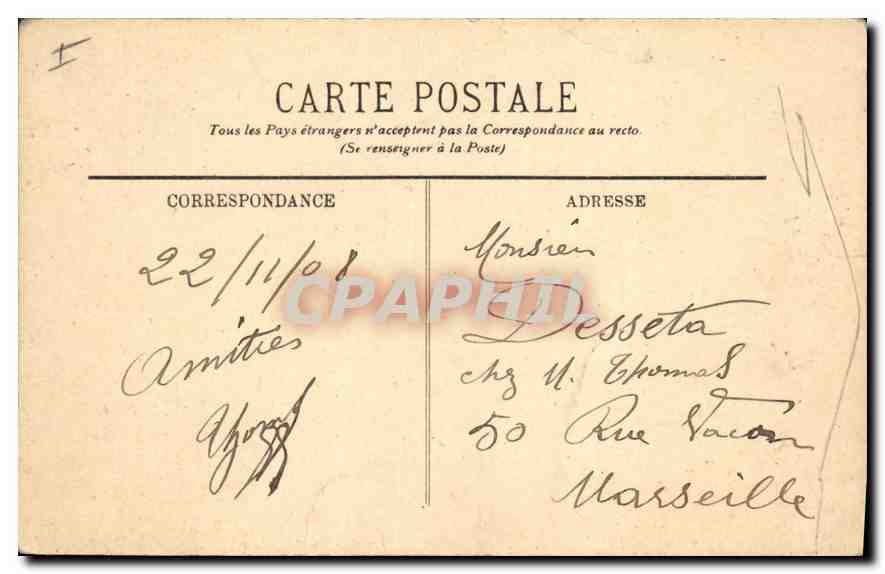 CARTE POSTALE
Tous les Pays étrangers n'acceptent pas la Correspondance au recto.
(Se renseigner à la Poste)
CORRESPONDANCE
ADRESSE
22/11/08
Amitiés
Monsieur
Desseta
chez M. Thomas
50 Rue Vacon
Marseille
CPAPHIL